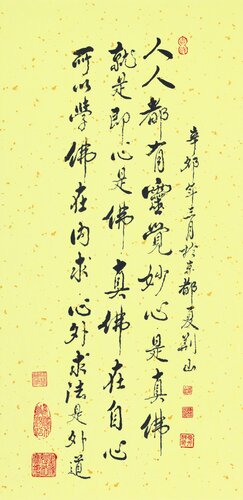 辛卯年三月於京都夏荊山
人人都有靈覺妙心是真佛
就是即心是佛真佛在自心
所以學佛在內求心外求法是外道